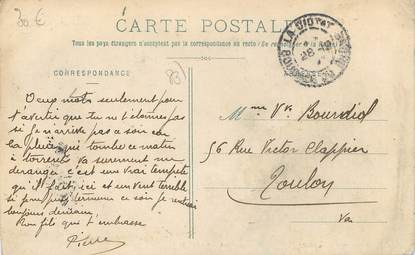 30 €
CARTE POSTALE
Tous les pays étrangers n'acceptent pas la correspondance au recto
CORRESPONDANCE
LA CIOTAT
28
Deux mots seulement pour
t'avertir que tu ne t'étonnes pas
si je n'arrive pas ce soir car
la pluie qui tombe ce matin
à torrents va surement me
deranger c'est une vrai tempête
qu'il fait ici et un vent terrible
si peut terminer ce soir je rentrerai
toujours demain.
Ton fils qui t'embrasse
Pierre
Mme Vve Bourdiol
56 Rue Victor Clappier
Toulon
Var